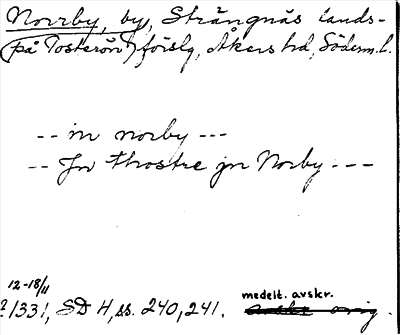 Norrby, by, Strängnäs lands-
(på Tosterön) förslg, Åkers hd, Söderm.l.
-- in norby ---
-- Jn thostre jn Norby ---
12-18/11
?/1331, SD 4, ss. 240, 241. medelt. avskr. orig.